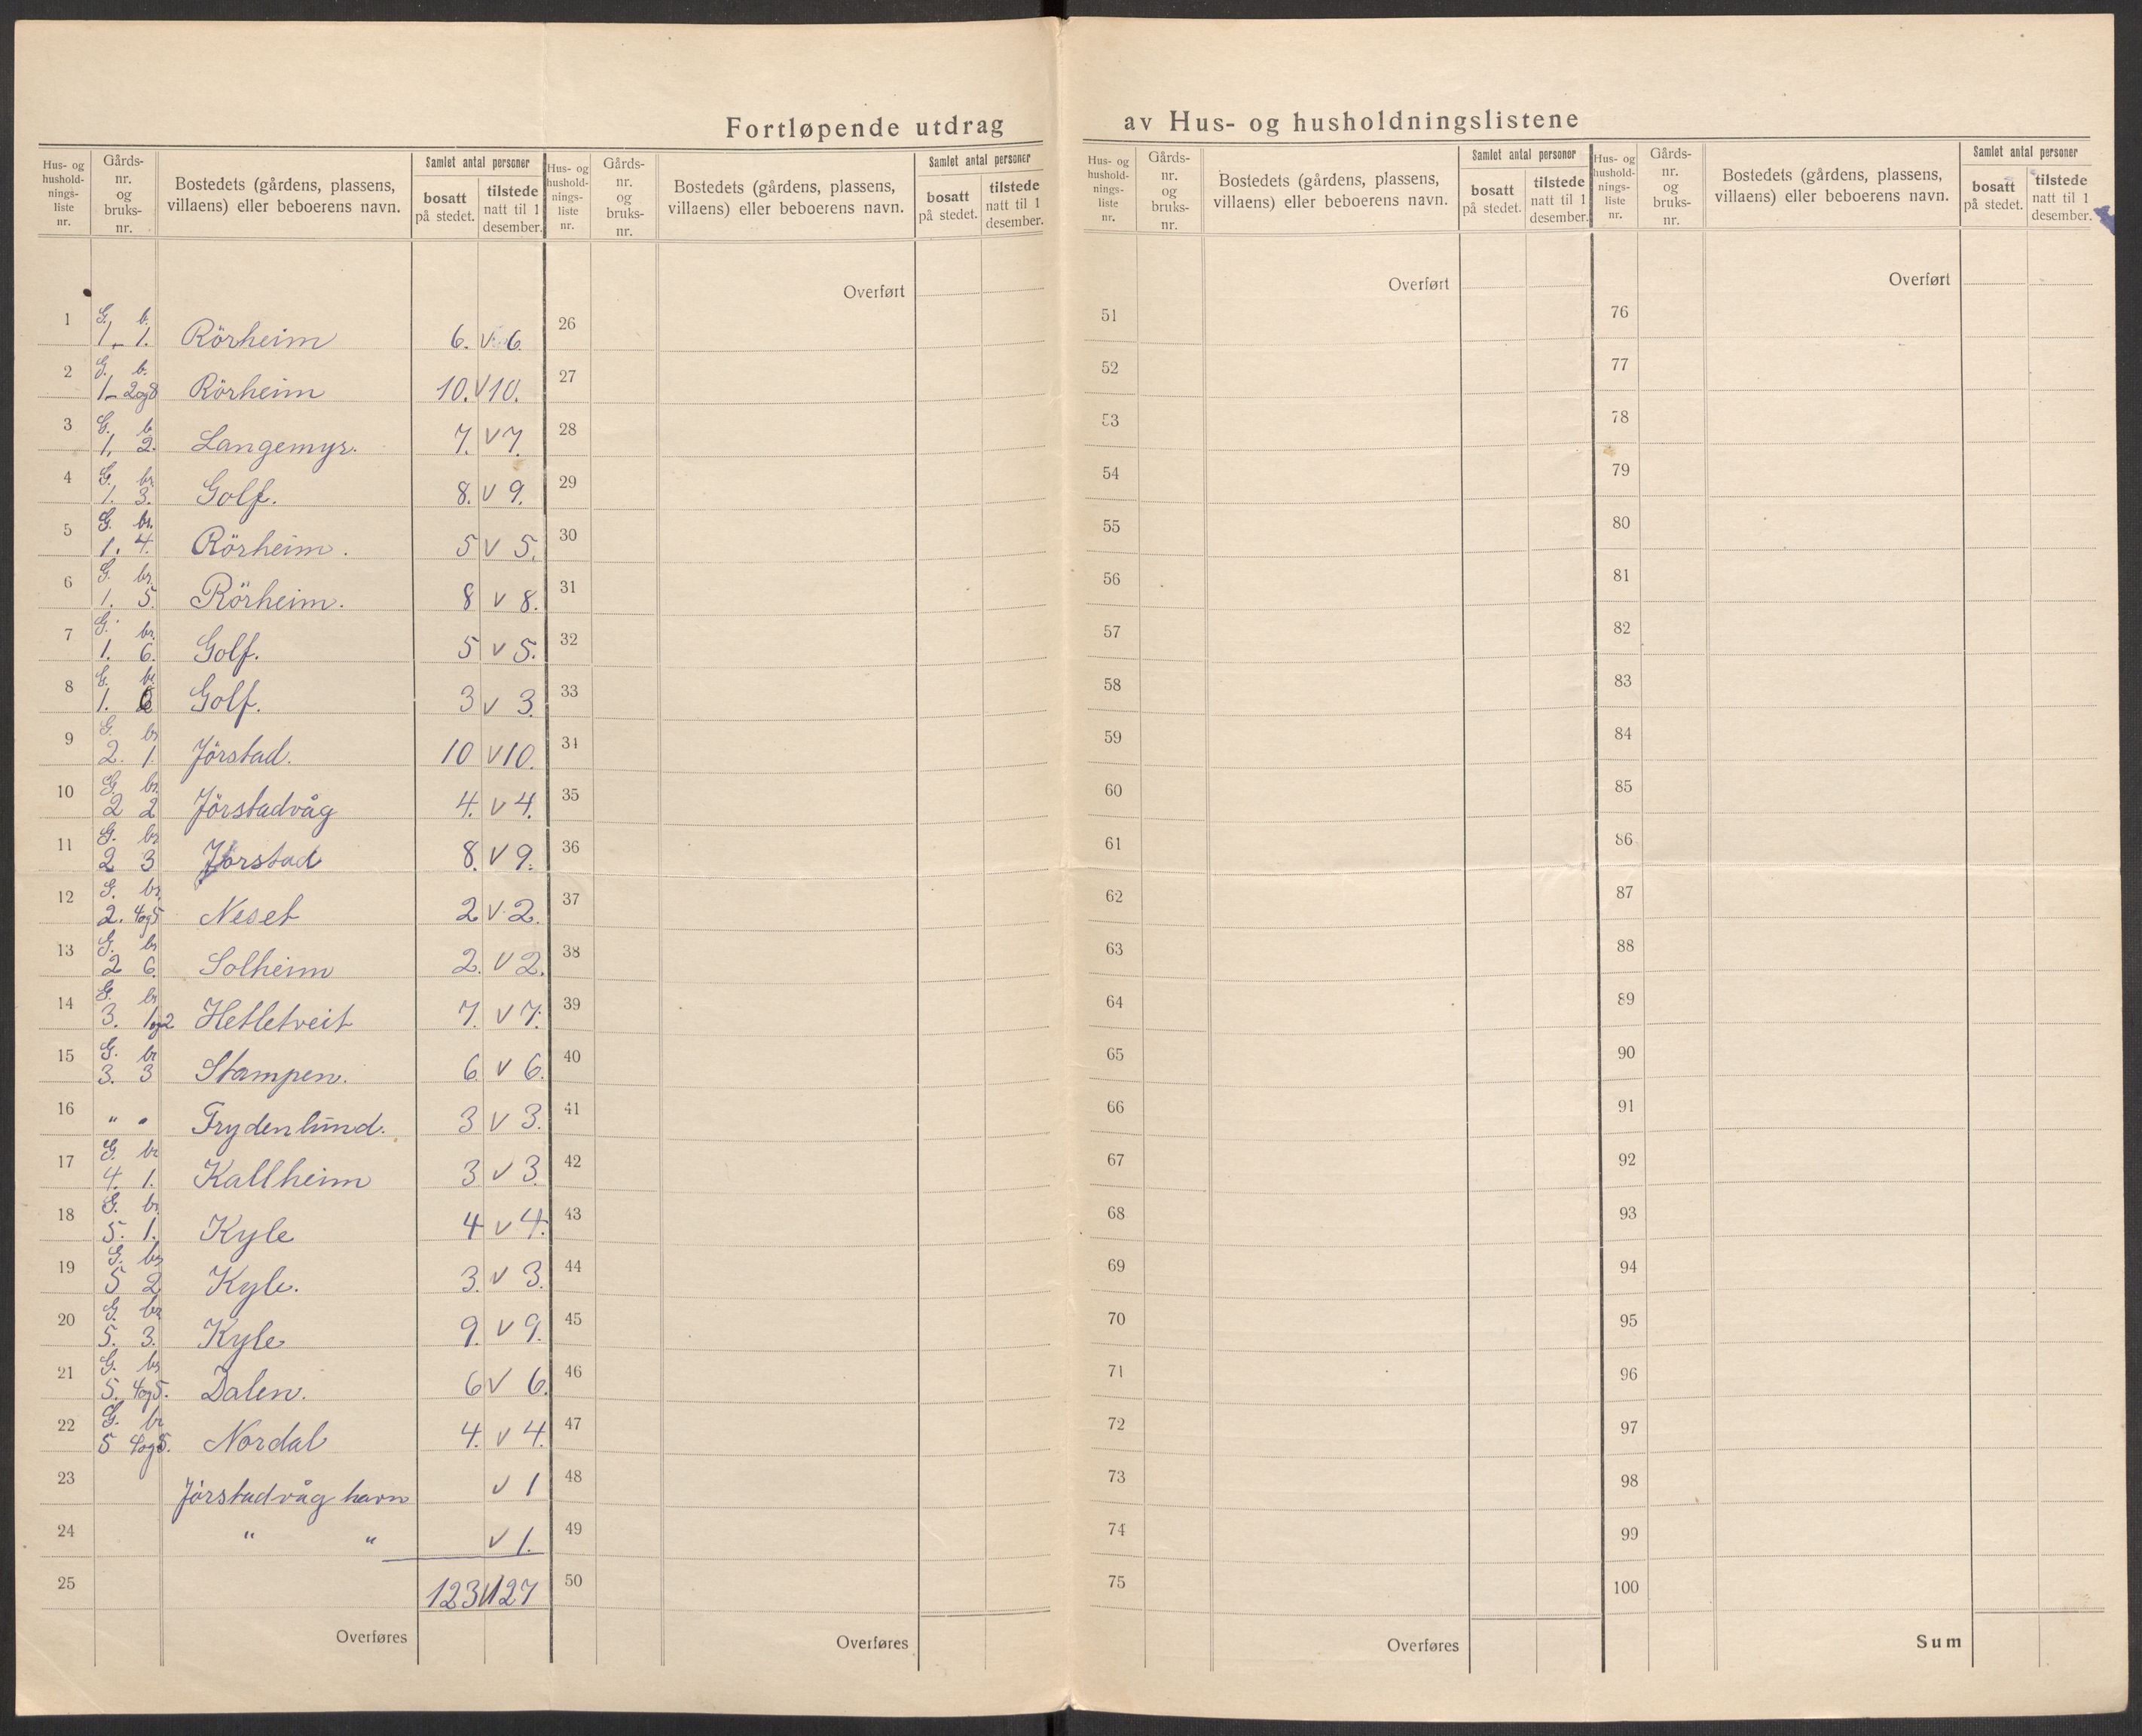 Fortløpende utdrag av Hus- og husholdningslistene
Hus- og hushold-nings-liste nr. Gårds-nr. og bruks-nr. Bostedets (gårdens, plassens, villaens) eller beboerens navn. Samlet antal personer bosatt på stedet. tilstede natt til 1 desember.
1 G. b. 1, 1. Rörheim 6. v 6.
2 G. b. 1 - 2 og 8 Rörheim 10. v 10.
3 G. b 1, 2. Langemyr. 7. v 7.
4 G. br 1. 3. Golf. 8. v 9.
5 G. br. 1. 4. Rörheim. 5 v 5.
6 G. br. 1. 5. Rörheim. 8 v 8.
7 G. br. 1. 6. Golf. 5 v 5.
8 G. br. 1. 6 Golf. 3 v 3.
9 G. br 2. 1. Jörstad. 10 v 10.
10 G. br. 2 2 Jörstadvåg 4. v 4.
11 G. br 2 3 Jörstad 8. v 9.
12 G. br. 2. 4og5 Neset 2 v 2.
13 G. br 2 6. Solheim 2. v 2.
14 G. br 3. 1og2 Hetletveit 7. v 7.
15 G. br 3. 3 Stampen. 6 v 6.
16 " " Frydenlund. 3 v 3.
17 G. br 4. 1. Kallheim 3 v 3.
18 G. br. 5. 1. Kyle 4 v 4.
19 G. br 5 2 Kyle. 3. v 3.
20 G. br 5. 3. Kyle 9. v 9.
21 G. br 5. 4og5. Dalen. 6 v 6.
22 G. br 5 4og5. Nordal 4. v 4.
23 Jörstadvåg havn v 1
24 " " v 1.
25 123 v 127
Overføres
Hus- og hushold-nings-liste nr. Gårds-nr. og bruks-nr. Bostedets (gårdens, plassens, villaens) eller beboerens navn. Samlet antal personer bosatt på stedet. tilstede natt til 1 desember.
Overført
26
27
28
29
30
31
32
33
34
35
36
37
38
39
40
41
42
43
44
45
46
47
48
49
50
Overføres
Hus- og hushold-nings-liste nr. Gårds-nr. og bruks-nr. Bostedets (gårdens, plassens, villaens) eller beboerens navn. Samlet antal personer bosatt på stedet. tilstede natt til 1 desember.
Overført
51
52
53
54
55
56
57
58
59
60
61
62
63
64
65
66
67
68
69
70
71
72
73
74
75
Overføres
Hus- og hushold-nings-liste nr. Gårds-nr. og bruks-nr. Bostedets (gårdens, plassens, villaens) eller beboerens navn. Samlet antal personer bosatt på stedet. tilstede natt til 1 desember.
Overført
76
77
78
79
80
81
82
83
84
85
86
87
88
89
90
91
92
93
94
95
96
97
98
99
100
Sum